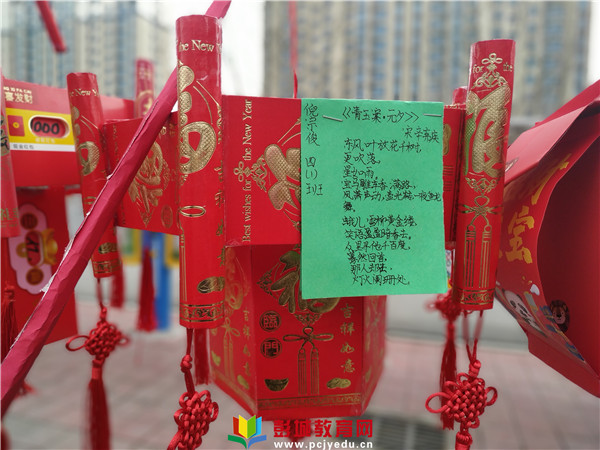 the New Year
for the
喜发财
Best wishes for the New Year
吉祥如意
吉祥如意
四(1)班
《青玉案·元夕》
东风夜放花千树,
更吹落,
星如雨,
宝马雕车香满路。
凤箫声动,玉壶光转,一夜鱼龙
舞。
蛾儿雪柳黄金缕,
笑语盈盈暗香去。
众里寻他千百度,
蓦然回首,
那人却在,
灯火阑珊处。
彭城教育网
www.pcjyedu.cn